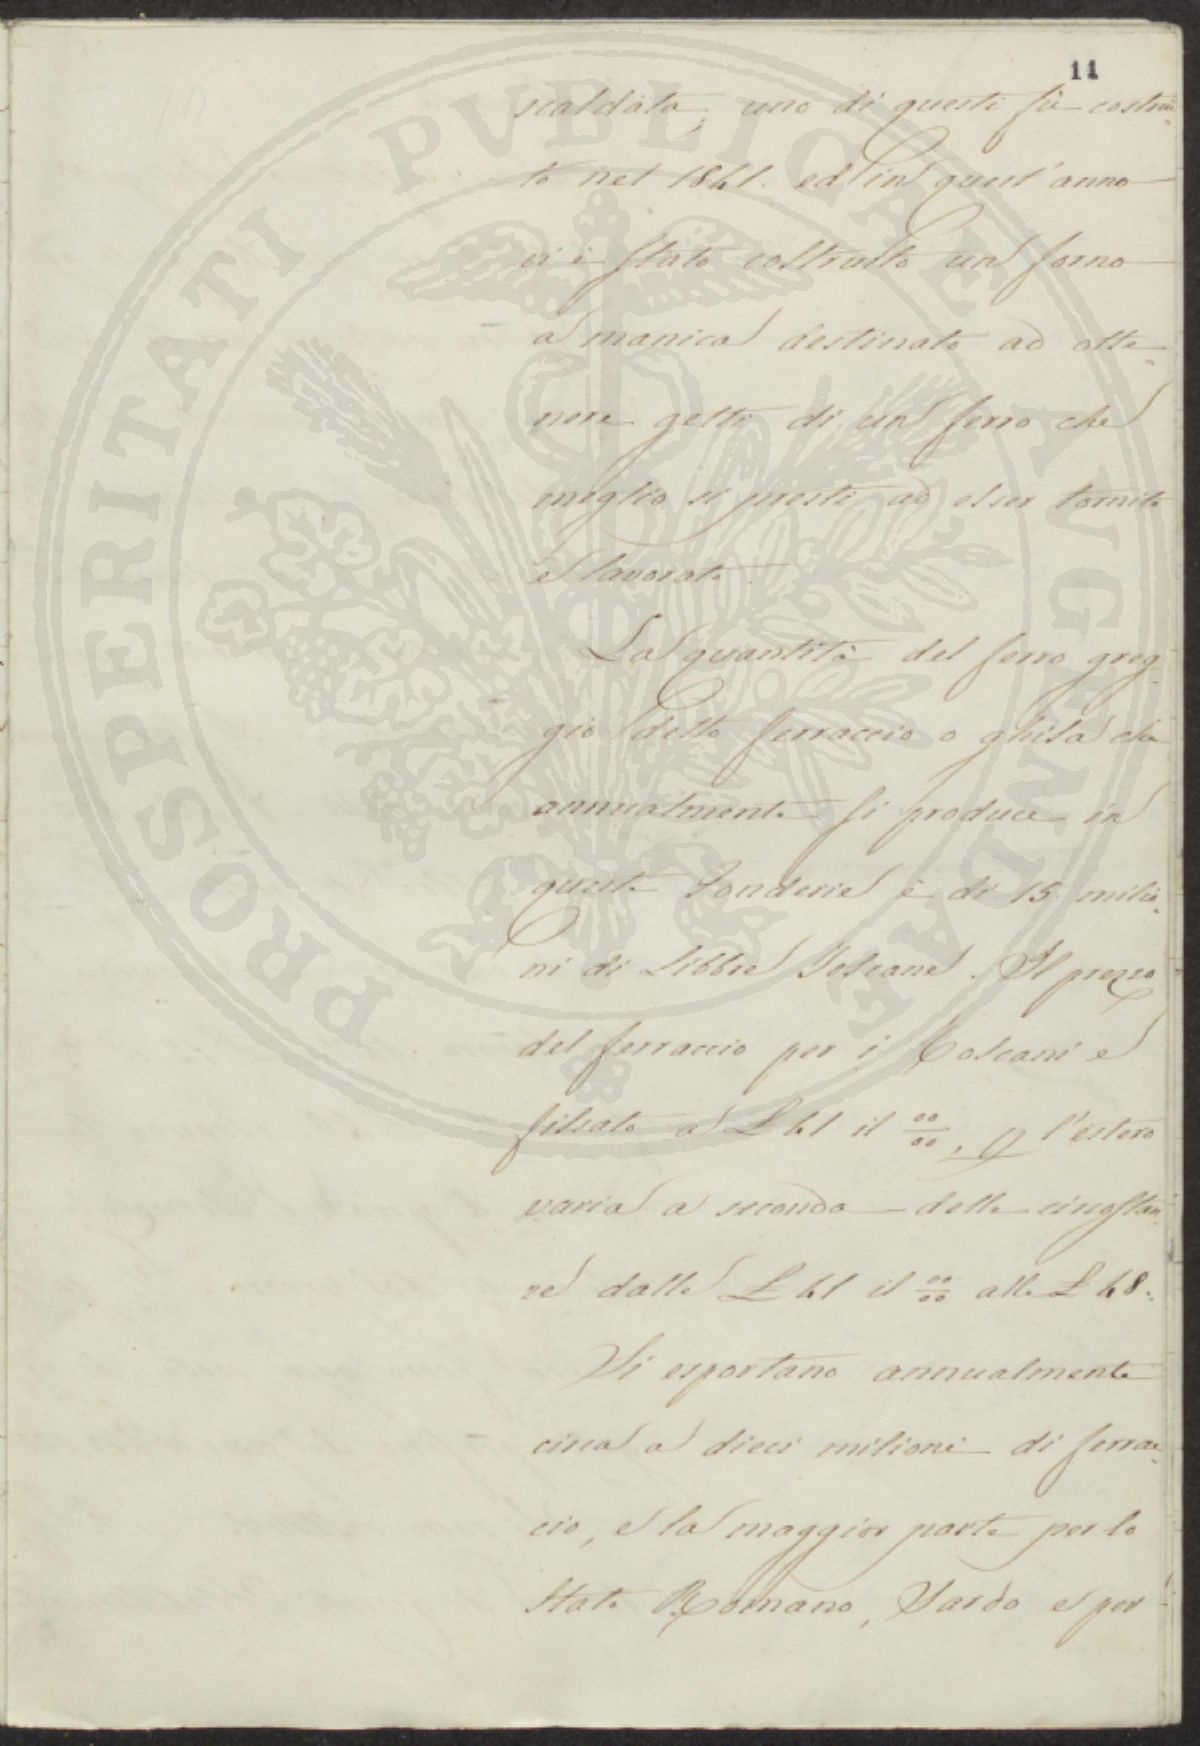 11
scaldata; uno di questi fù costrui=
to nel 1841. ed in quest'anno
vi è stato costrutto un forno
a manica destinato ad otte=
nere getti di un ferro che
meglio si presti ad esser tornito
e lavorato.
La quantità del ferro greg=
gio detto ferraccio o ghisa che
annualmente si produce in
queste Fonderie è di 15. milio=
ni di Libbre Toscane. Il prezzo
del ferraccio per i Toscani è
fissato a £ 41 il 00/00, p l'estero
varia a seconda delle circostan
ze dalle £ 41 il 00/00 alle £ 48.
Si esportano annualmente
circa a dieci milioni di ferrac=
cio, e la maggior parte per lo
Stato Romano, Sardo e per
PROSPERITATI PVBLICAE AVGENDAE